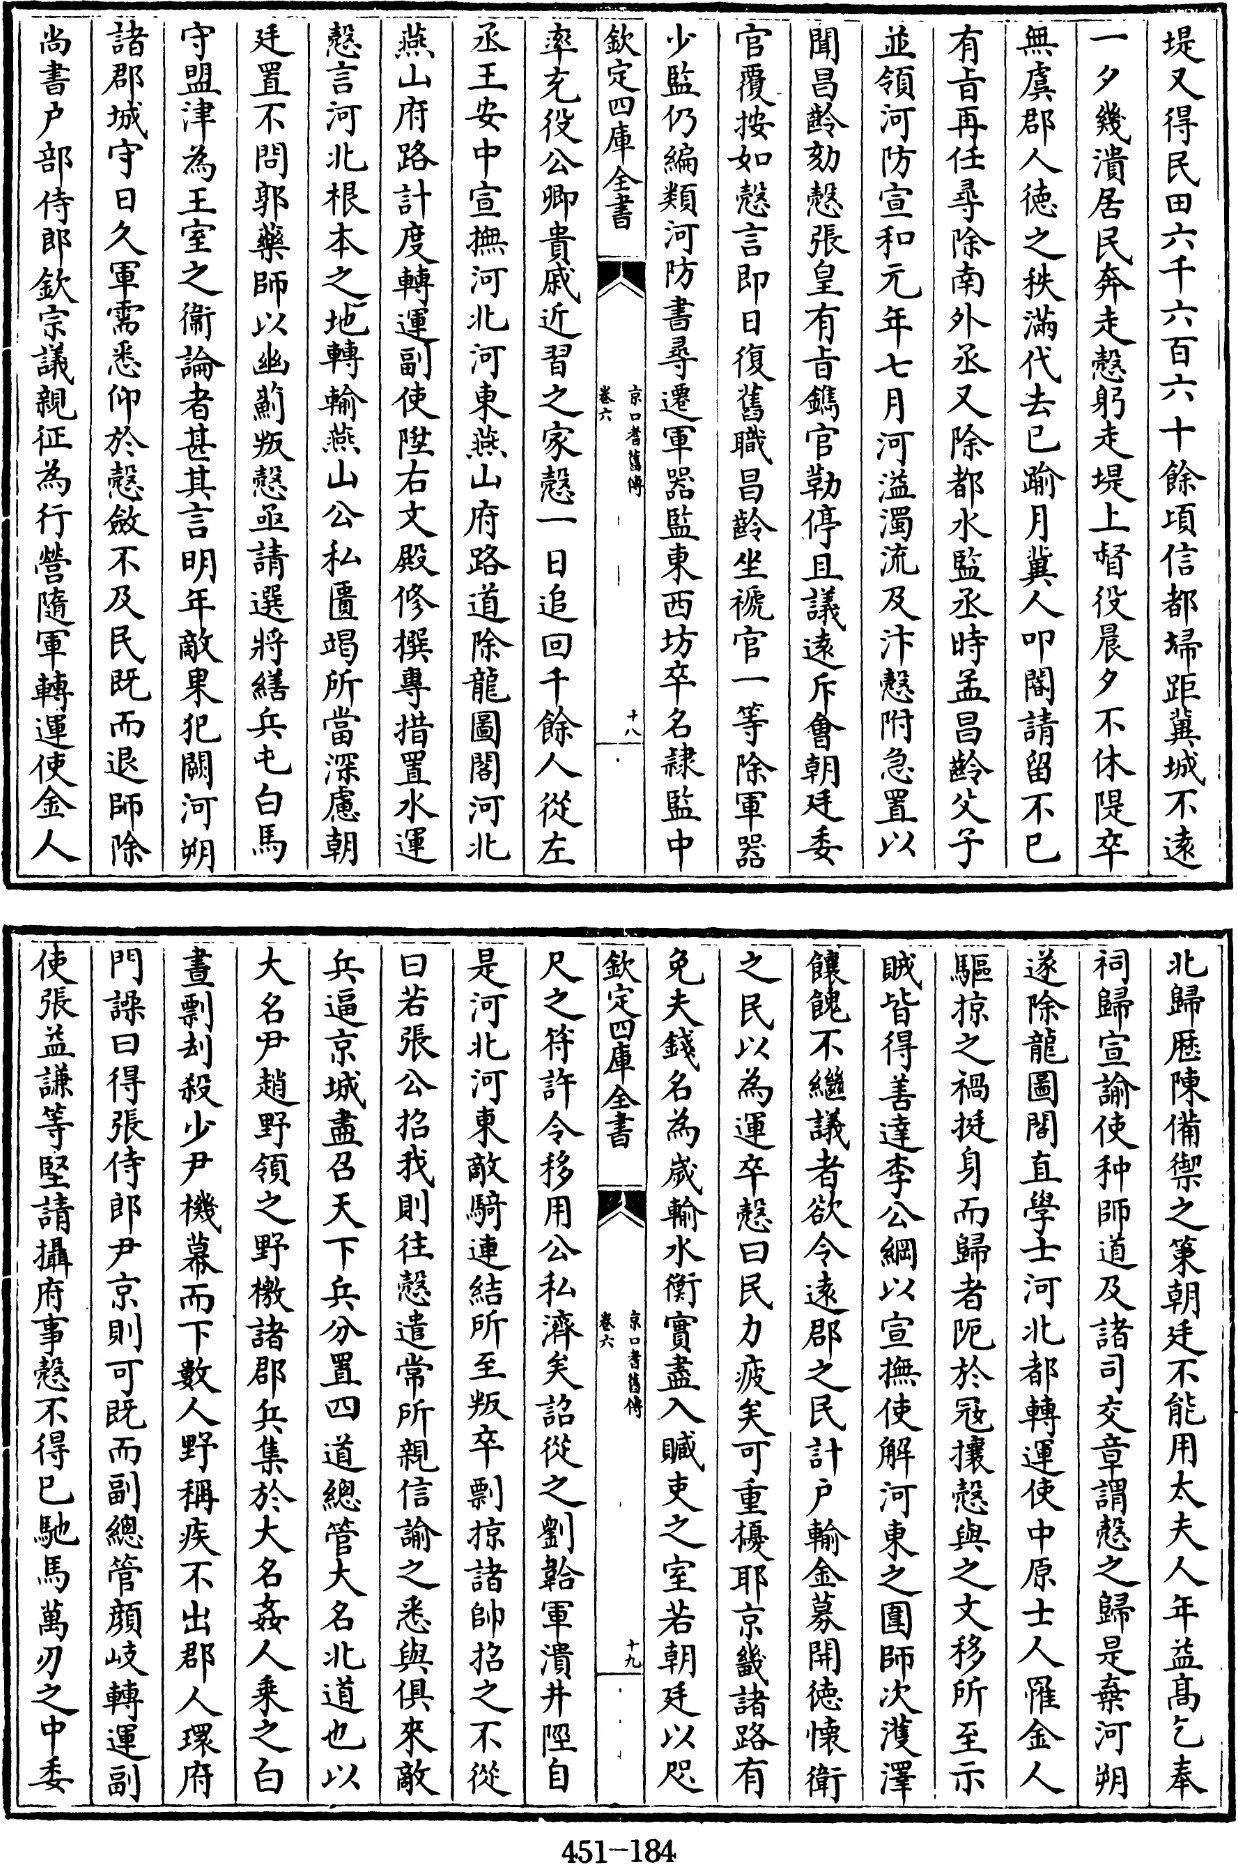 堤又得民田六千六百六十餘頃信都埽距冀城不遠
一夕幾潰居民奔走慤躬走堤上督役晨夕不休隄卒
無虞郡人德之秩滿代去已踰月冀人叩閽請留不已
有旨再任尋除南外丞又除都水監丞時孟昌齡父子
並領河防宣和元年七月河溢濁流及汴慤附急置以
聞昌齡劾慤張皇有旨鐫官勒停且議遠斥會朝廷委
官覆按如慤言即日復舊職昌齡坐褫官一等除軍器
少監仍編類河防書尋遷軍器監東西坊卒名隷監中
欽定四庫全書
京口耆舊傳
卷六
十八
率充役公卿貴戚近習之家慤一日追回千餘人從左
丞王安中宣撫河北河東燕山府路道除龍圖閣河北
燕山府路計度轉運副使陞右文殿修撰專措置水運
慤言河北根本之地轉輸燕山公私匱竭所當深慮朝
廷置不問郭藥師以幽薊叛慤亟請選將繕兵屯白馬
守盟津為王室之衞論者甚其言明年敵果犯闕河朔
諸郡城守日久軍需悉仰於慤斂不及民既而退師除
尚書户部侍郎欽宗議親征為行營隨軍轉運使金人
北歸厯陳備禦之策朝廷不能用太夫人年益髙乞奉
祠歸宣諭使种師道及諸司交章謂慤之歸是棄河朔
遂除龍圖閣直學士河北都轉運使中原士人罹金人
驅掠之禍挺身而歸者阨於冦攘慤與之文移所至示
賊皆得善達李公綱以宣撫使解河東之圍師次濩澤
饟餽不繼議者欲令遠郡之民計户輸金募開德懷衛
之民以為運卒慤曰民力疲矣可重擾耶京畿諸路有
免夫錢名為歲輸水衡實盡入贓吏之室若朝廷以咫
欽定四庫全書
京口耆舊傳
卷六
十九
尺之符許令移用公私濟矣詔從之劉韐軍潰井陘自
是河北河東敵騎連結所至叛卒剽掠諸帥招之不從
曰若張公招我則往慤遣常所親信諭之悉與俱來敵
兵逼京城盡召天下兵分置四道總管大名北道也以
大名尹趙野領之野檄諸郡兵集於大名姦人乗之白
晝剽刦殺少尹機幕而下數人野稱疾不出郡人環府
門譟曰得張侍郎尹京則可既而副總管顔岐轉運副
使張益謙等堅請攝府事慤不得已馳馬萬刃之中委
451-184